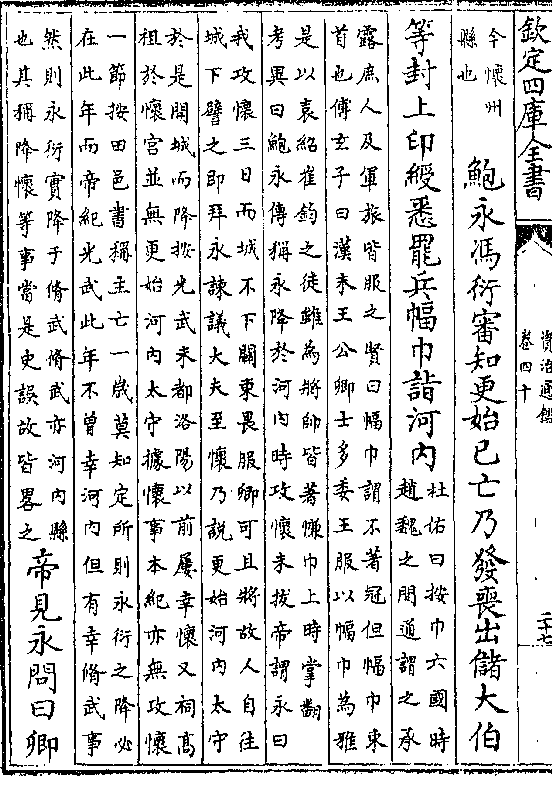 欽定四庫全書
資治通鑑
卷四十
二十七
今懷州
縣也
鮑永馮衍審知更始已亡乃發喪出儲大伯
等封上印綬悉罷兵幅巾詣河内
杜佑曰按巾六國時
趙魏之間通謂之承
露庶人及軍旅皆服之賢曰幅巾謂不著冠但幅巾束
首也傅玄子曰漢末王公卿士多委王服以幅巾為雅
是以袁紹崔鈞之徒雖為將帥皆著縑巾上時掌翻
考異曰鮑永傳稱永降於河内時攻懷未拔帝謂永曰
我攻懷三日而城不下關東畏服卿可且將故人自往
城下譬之即拜永諫議大夫至懷乃說更始河内太守
於是開城而降按光武未都洛陽以前屢幸懷又祠高
祖於懷宫並無更始河内太守據懷事本紀亦無攻懷
一節按田邑書稱主亡一歲莫知定所則永衍之降必
在此年而帝紀光武此年不曾幸河内但有幸脩武事
然則永衍實降于脩武脩武亦河内縣
也其稱降懷等事當是史誤故皆畧之
帝見永問曰卿